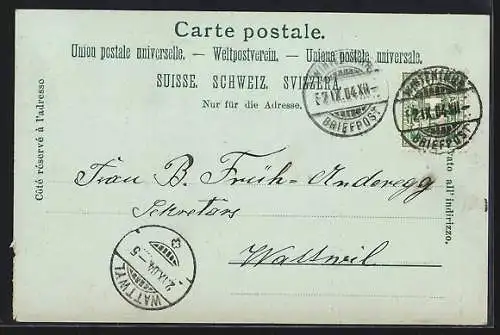 Carte postale.
Union postale universelle. — Weltpostverein. — Unione postale universale.
SUISSE. SCHWEIZ. SVIZZERA.
Nur für die Adresse.
Côté réservé à l'adresse
all'indirizzo.
WINTERTHUR
2.IX.04.XII
BRIEFPOST
WINTERTHUR
2.IX.04.XII
BRIEFPOST
Frau B. Früh-Anderegg
Sekretärs
Wattwil
2.IX.04.-5
WATTWYL